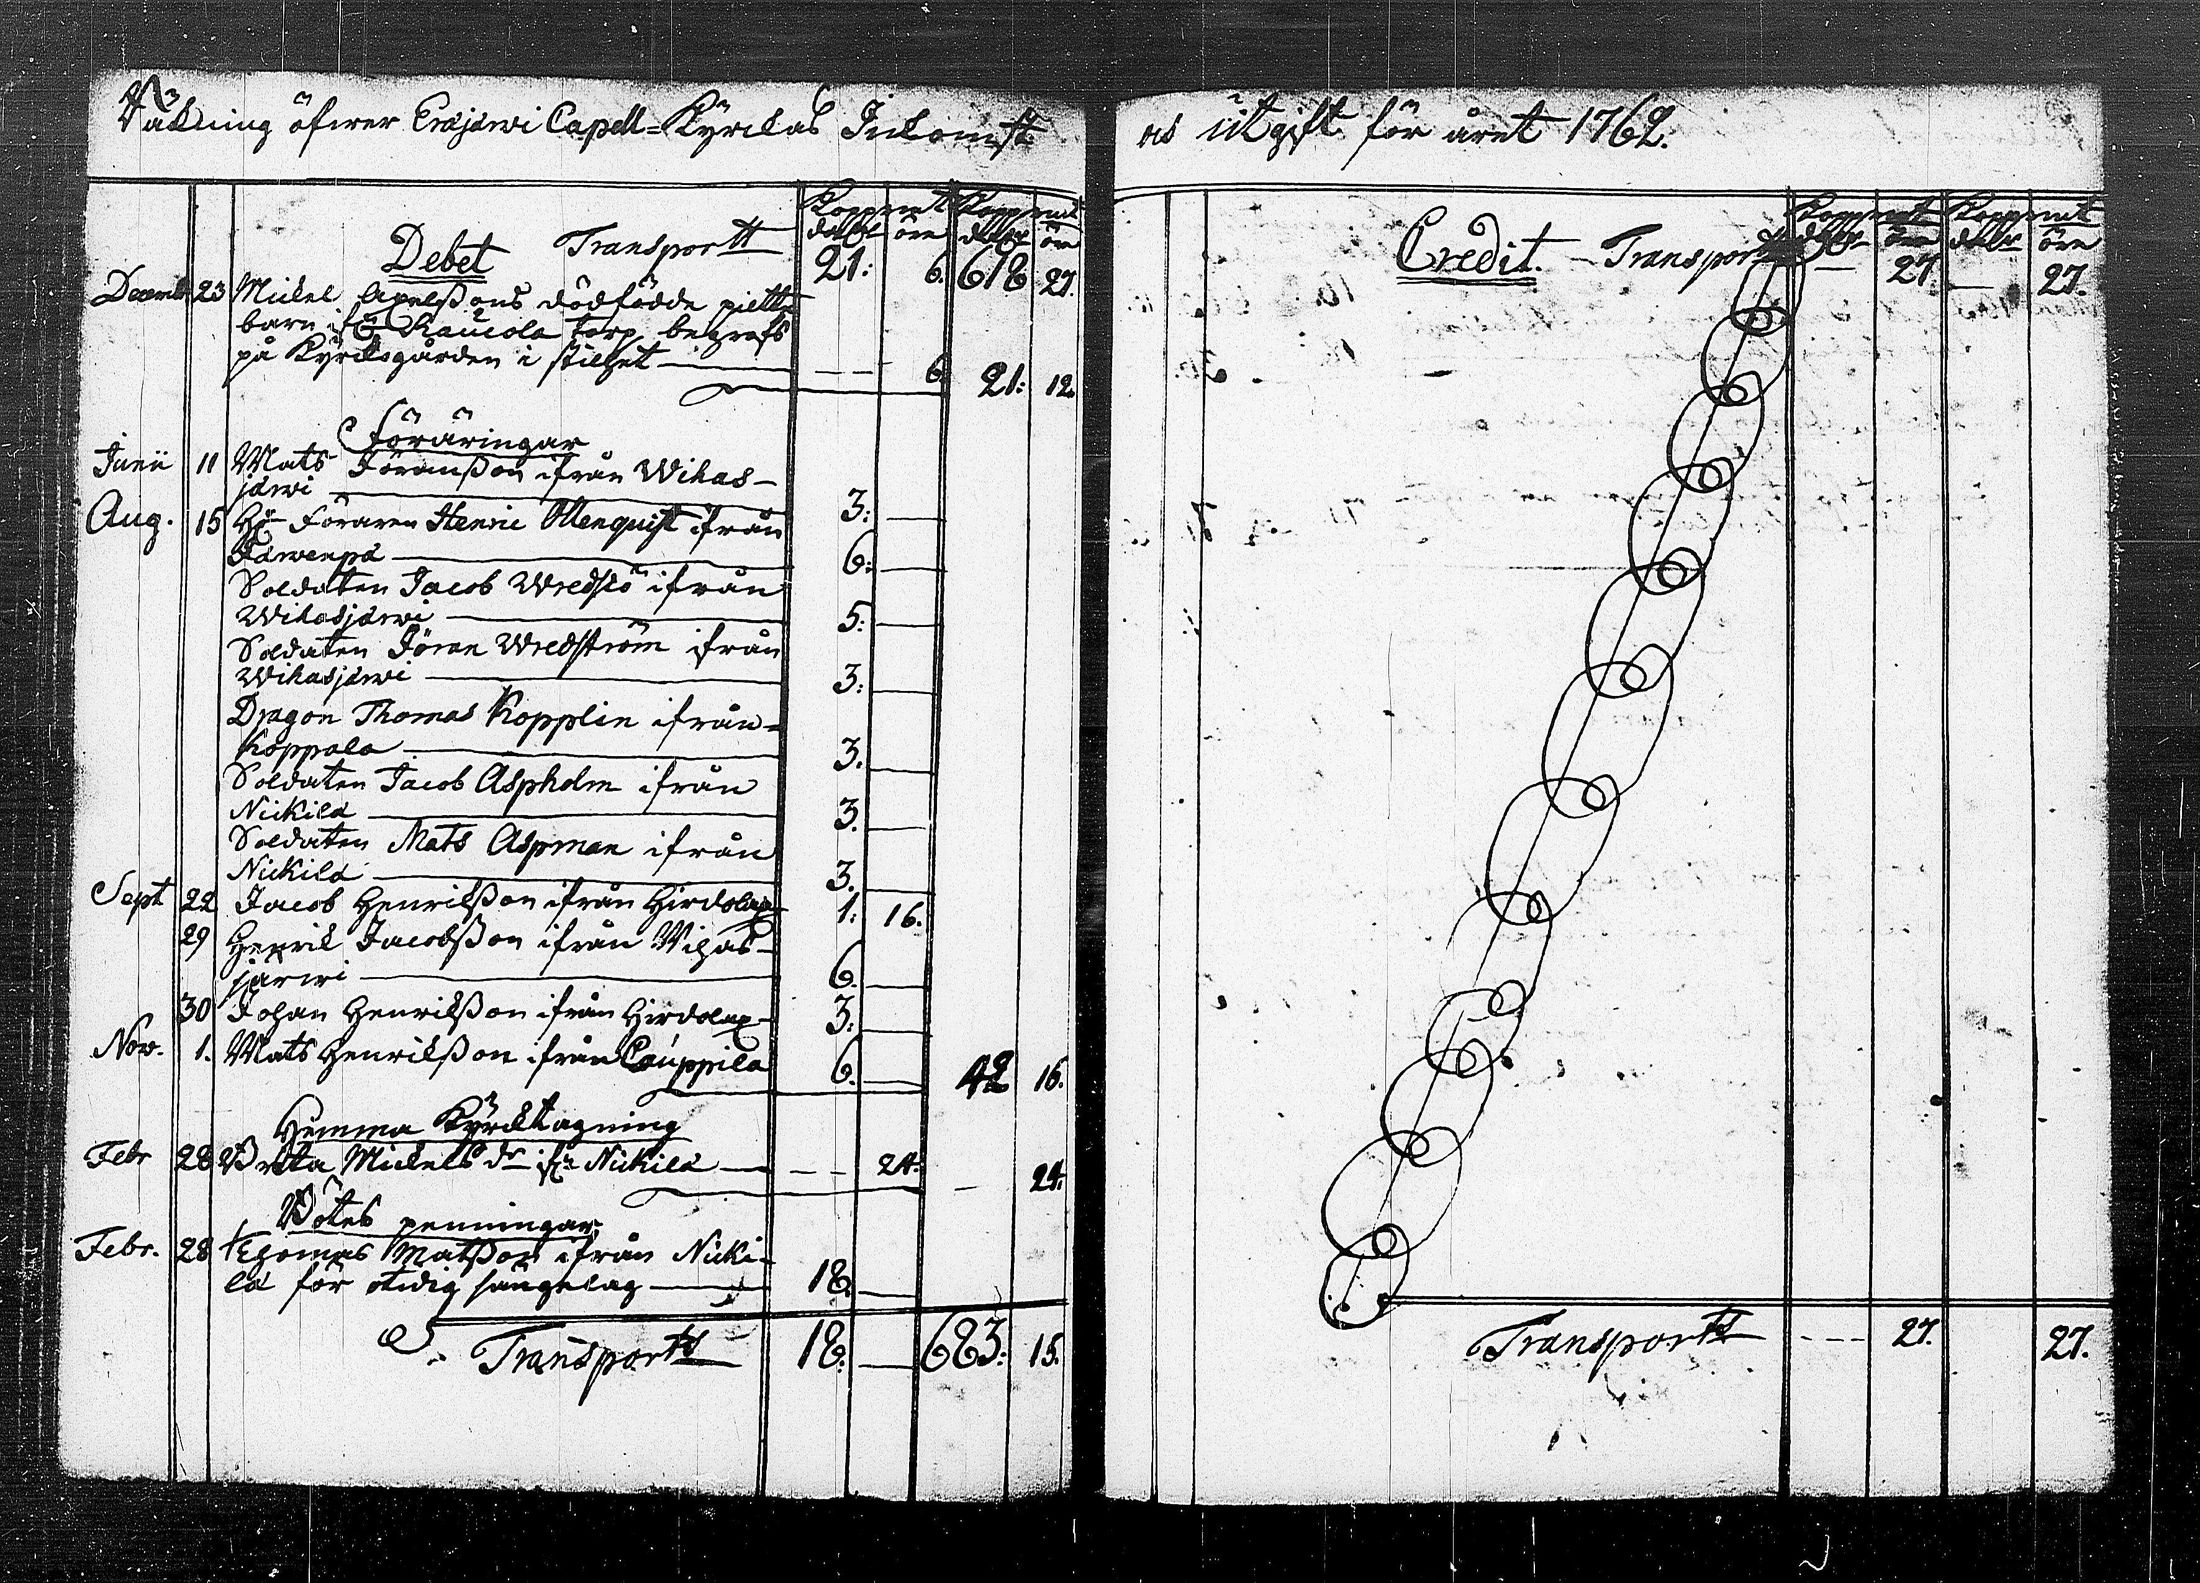 Räkning öfwer Eräjärwi Capell=Kyrckas Inkomst
Kopp mt Kopp mt
Debet Transportt daler öre daler öre
21: 6. 618 27.
Decemb. 23 Mickel Axelßons dödfödde pilt
barn ifr Kaucola torp begrafs
på Kyrckogården i stilhet — 6.
21: 12.
Föräringar
Junii 11 Mats Jöranßon ifrån Wihas-
järwi — 3: —
Aug. 15 Föraren Henric Allenquist ifrån
Järwenpä — 6: —
Soldaten Jacob Wredsiö ifrån
Wihasjärwi — 5: —
Soldaten Jöran Wredström ifrån
Wihasjärwi — 3: —
Dragon Thomas Kopplin ifrån
Koppala — 3. —
Soldaten Jacob Aspholm ifrån
Nickilä — 3. —
Soldaten Mats Aspman ifrån
Nickilä — 3. —
Sept 22 Jacob Henrikßon ifrån Hirdolax 1: 16.
29 Henrik Jacobßon ifrån Wihas-
järwi — 6. —
30 Johan Henrikßon ifrån Hirdolax 3: —
Nov. 1. Mats Henrikßon ifrån Cauppila 6. —
42 16.
Hemma Kyrcktagning
Febr 28 Brita Mickels dr ifr Nickilä — 24.
— 24.
Bötes penningar
Febr. 28 Thomas Matßon ifrån Nicki-
lä för otidig sängelag — 18. —
Transportt 18: — 683: 15.
us utgift för året 1762.
Kopp mt Kopp mt
Credit. Transportt daler öre daler öre
— 27. — 27.
Transportt - - - 27. 27.